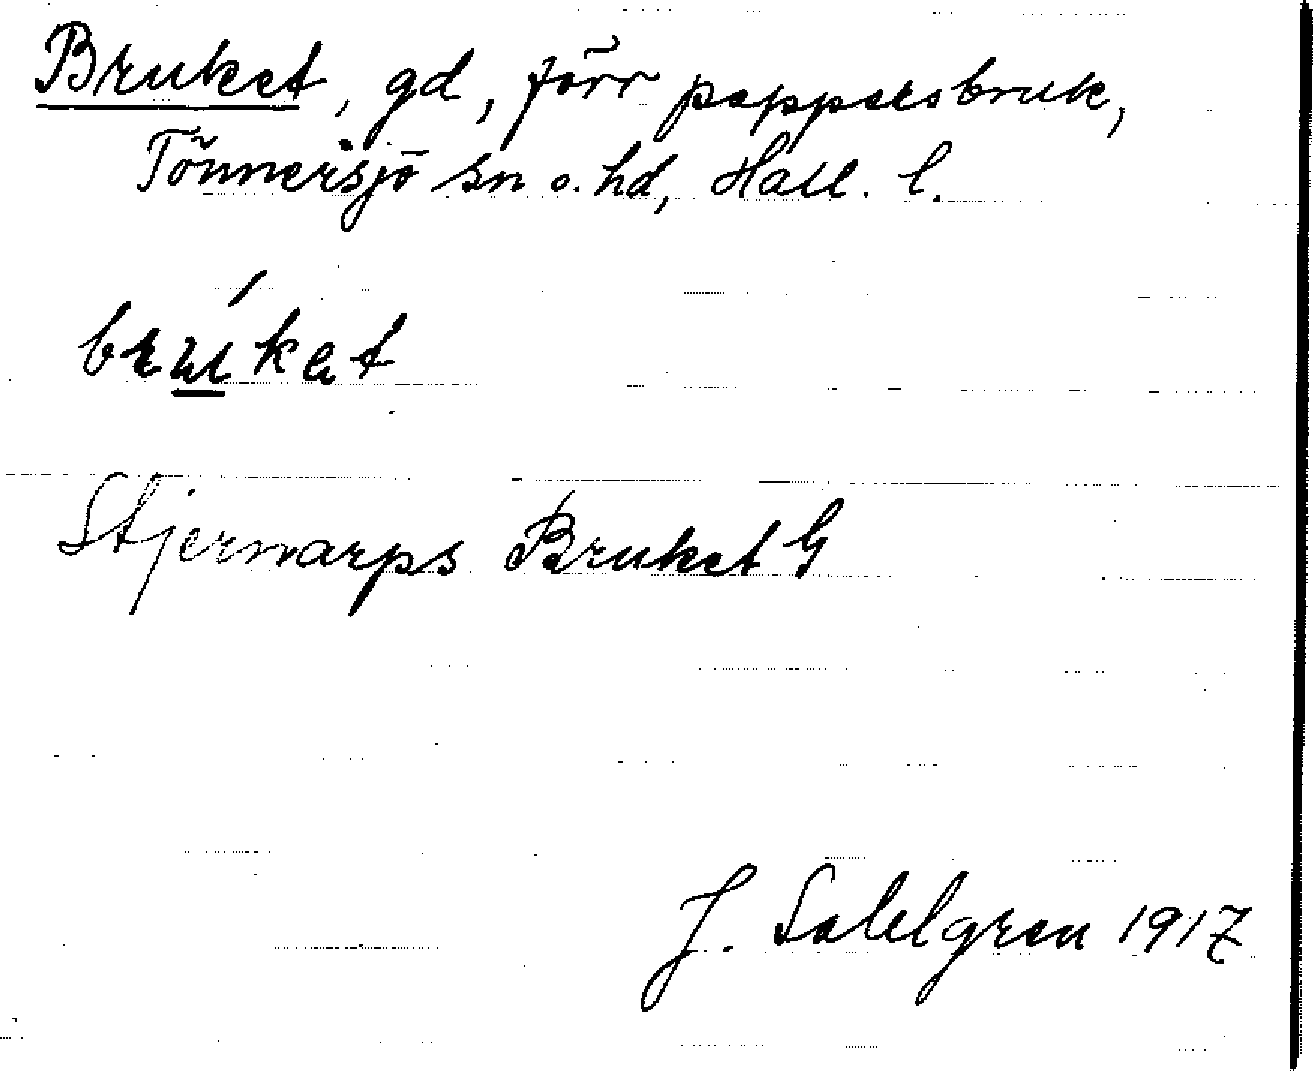 Bruket, gd, förr pappersbruk,
Tönnersjö sn o. hd, Hall. l.
brúkat
Stjernarps Bruket G
J. Sahlgren 1917